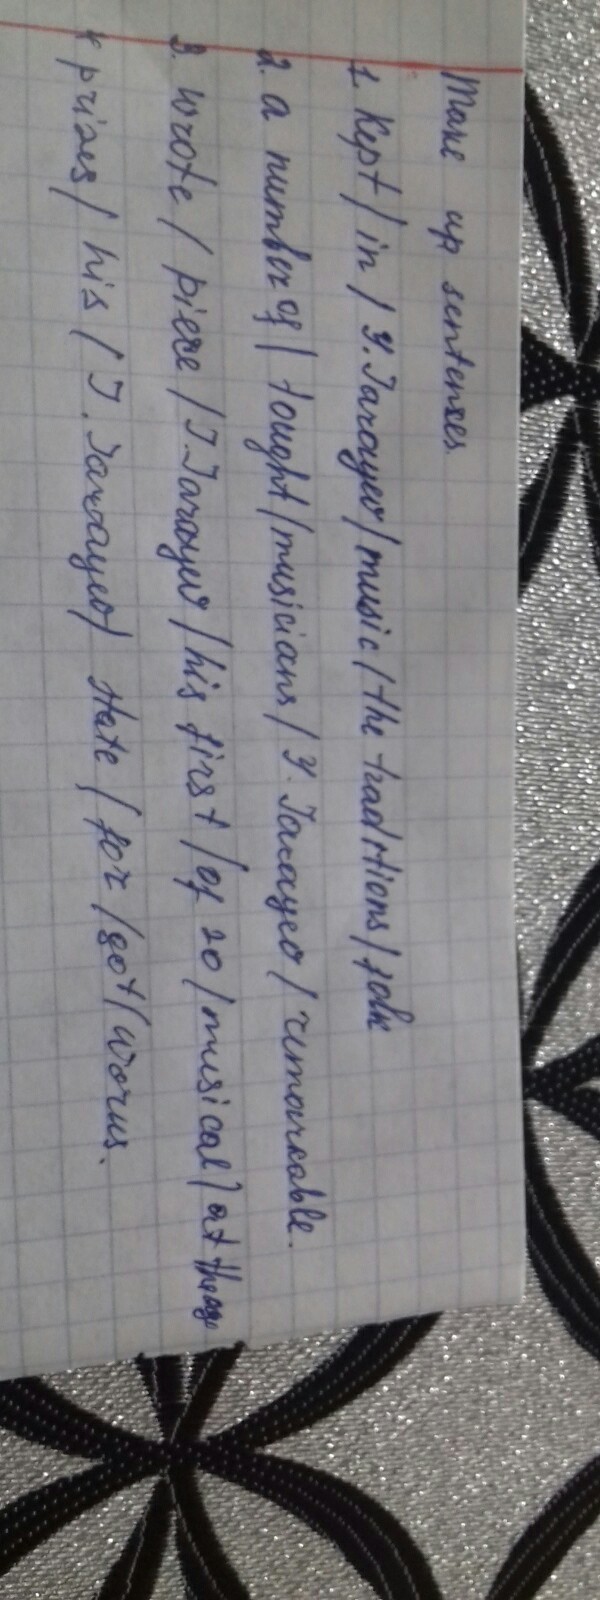 Make up sentenses
1. Kept / in / Y. Tarayev / music / the traditions / folk
2. a number of / tought / musicians / Y. Tarayev / remarkable.
3. wrote / piese / T. Tarayev / his first / of 20 / musical / at the age
4 prizes / his / T. Tarayev / State / for / got / works.